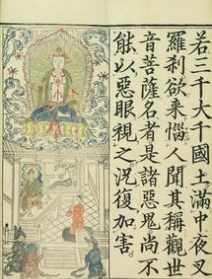 若三千大千國土滿中夜叉
羅刹欲来惱人聞其稱觀世
音菩薩名者是諸惡鬼尚不
能以惡眼視之况復加害